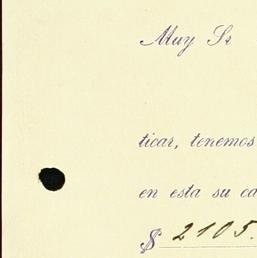 Muy Sr
ticar, tenemos
en esta su ca
$ 2105.